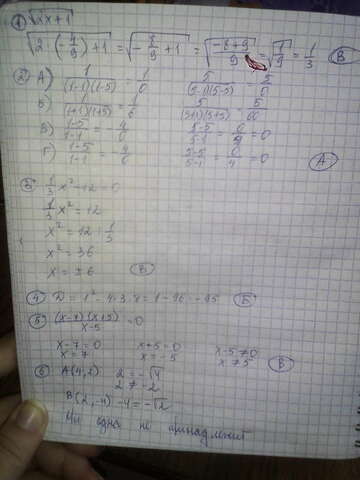 ① √xx+1
√2·(-4/9)+1 = √-8/9+1 = √(-8+9)/9 = √1/9 = 1/3 В
② А) 1/(1-1)(1-5) = 1/0 5/(5-1)(5-5) = 5/0
Б) 1/(1+1)(1+5) = 1/6 5/(5+1)(5+5) = 5/60
В) 1-5/1-1 = -4/0 5-5/5-1 = 0/4 = 0
Г) 1-5/1-1 = 4/0 5-5/5-1 = 0/4 = 0 А
③ 1/3x²-12=0
1/3x²=12
x²=12:1/3
x²=36
x=±6 В
④ D=1²-4·3·8=1-96=-95 Б
⑤ (x-7)(x+5)/x-5 = 0
x-7=0 x+5=0 x-5≠0
x=7 x=-5 x≠5 В
⑥ А(4,2) 2=-√4
2≠-2
В(2,-4) -4=-√2
Ни одна не принадлежит